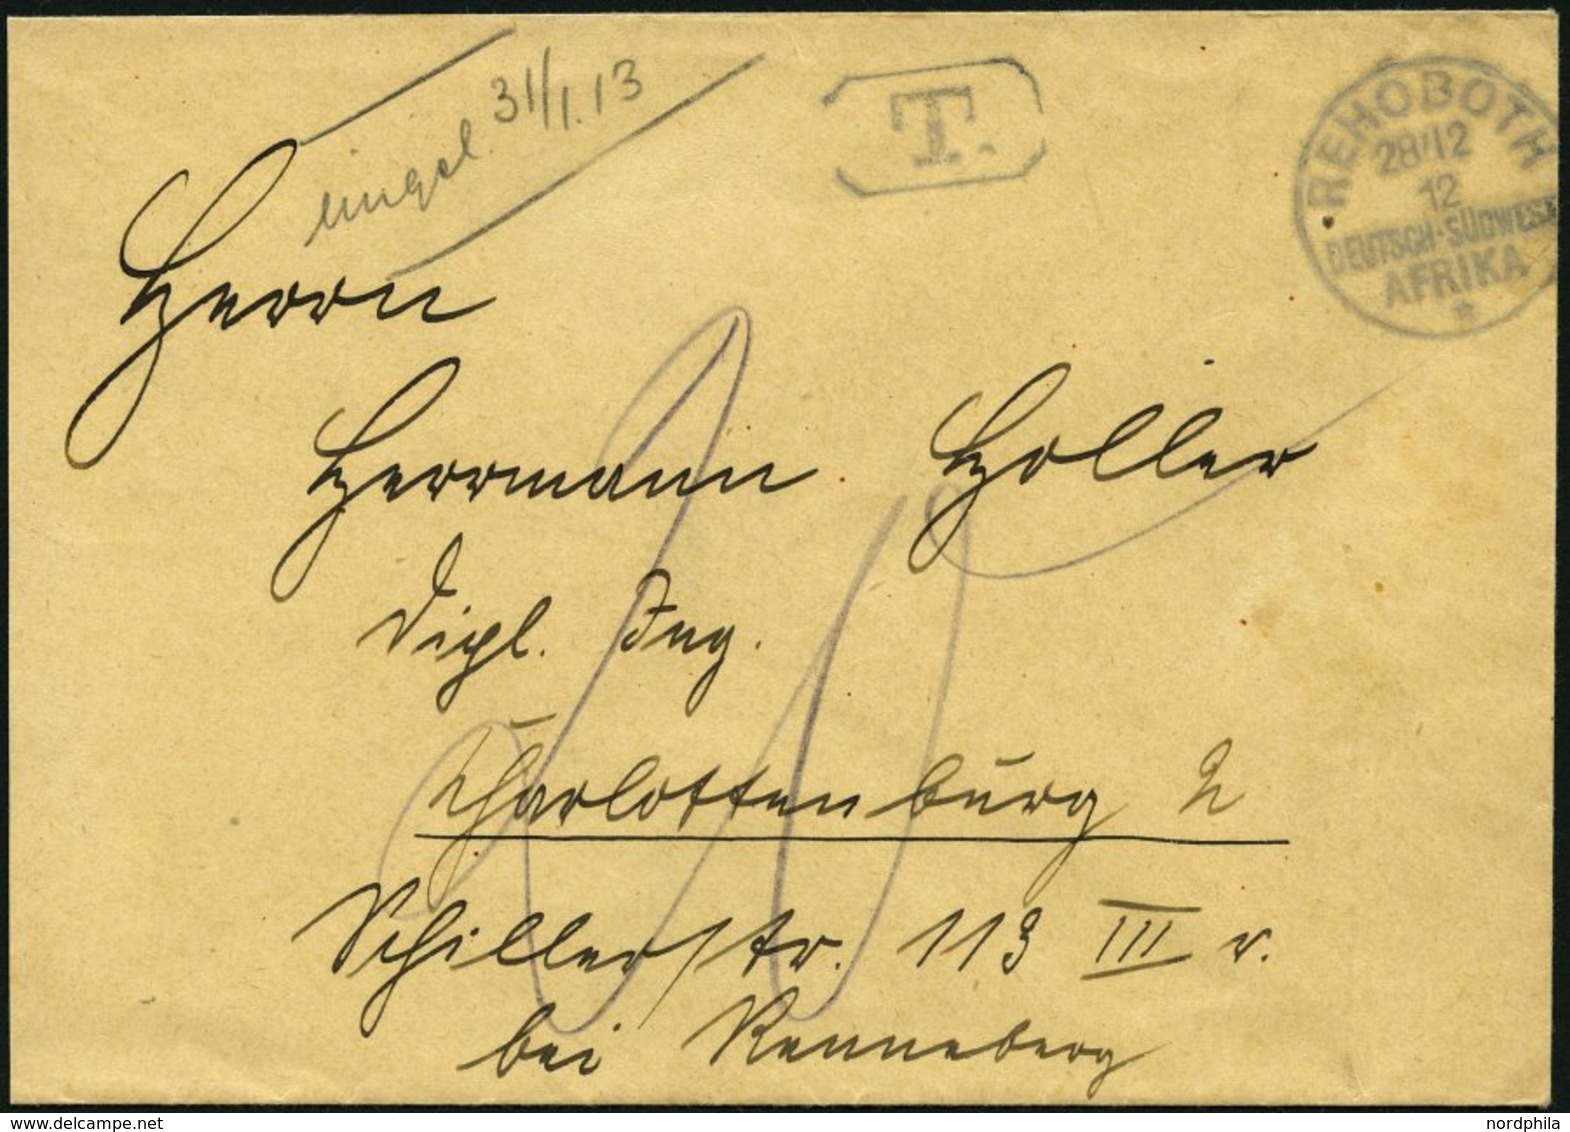 eingel. 31/1.13
T.
REHOBOTH
28/12
12
DEUTSCH-SÜDWEST
AFRIKA
Herrn
Herrmann Holler
Dipl. Ing.
20
Charlottenburg 2
Schillerstr. 113 III r.
bei Renneberg
www.delcampe.net
nordphila